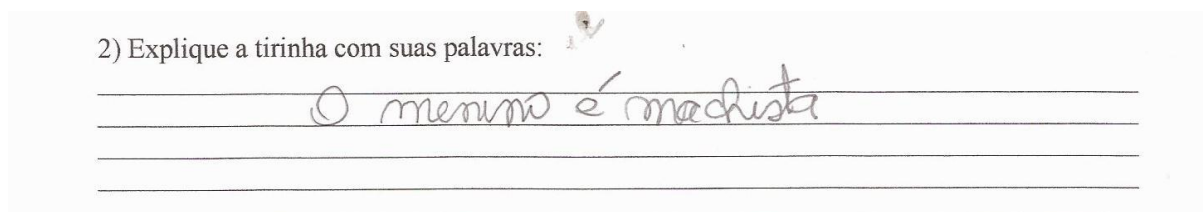 2) Explique a tirinha com suas palavras:
O menino é machista